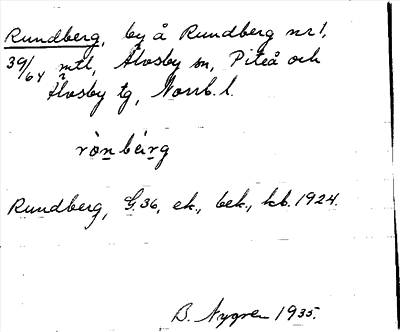 Rundberg, by å Rundberg nr 1,
39/64 mtl, Älvsby sn, Piteå och
Älvsby tg, Norrb. l.
rònbérg
Rundberg, G 36, ek., bek., kb. 1924.
B. Nygren 1935.